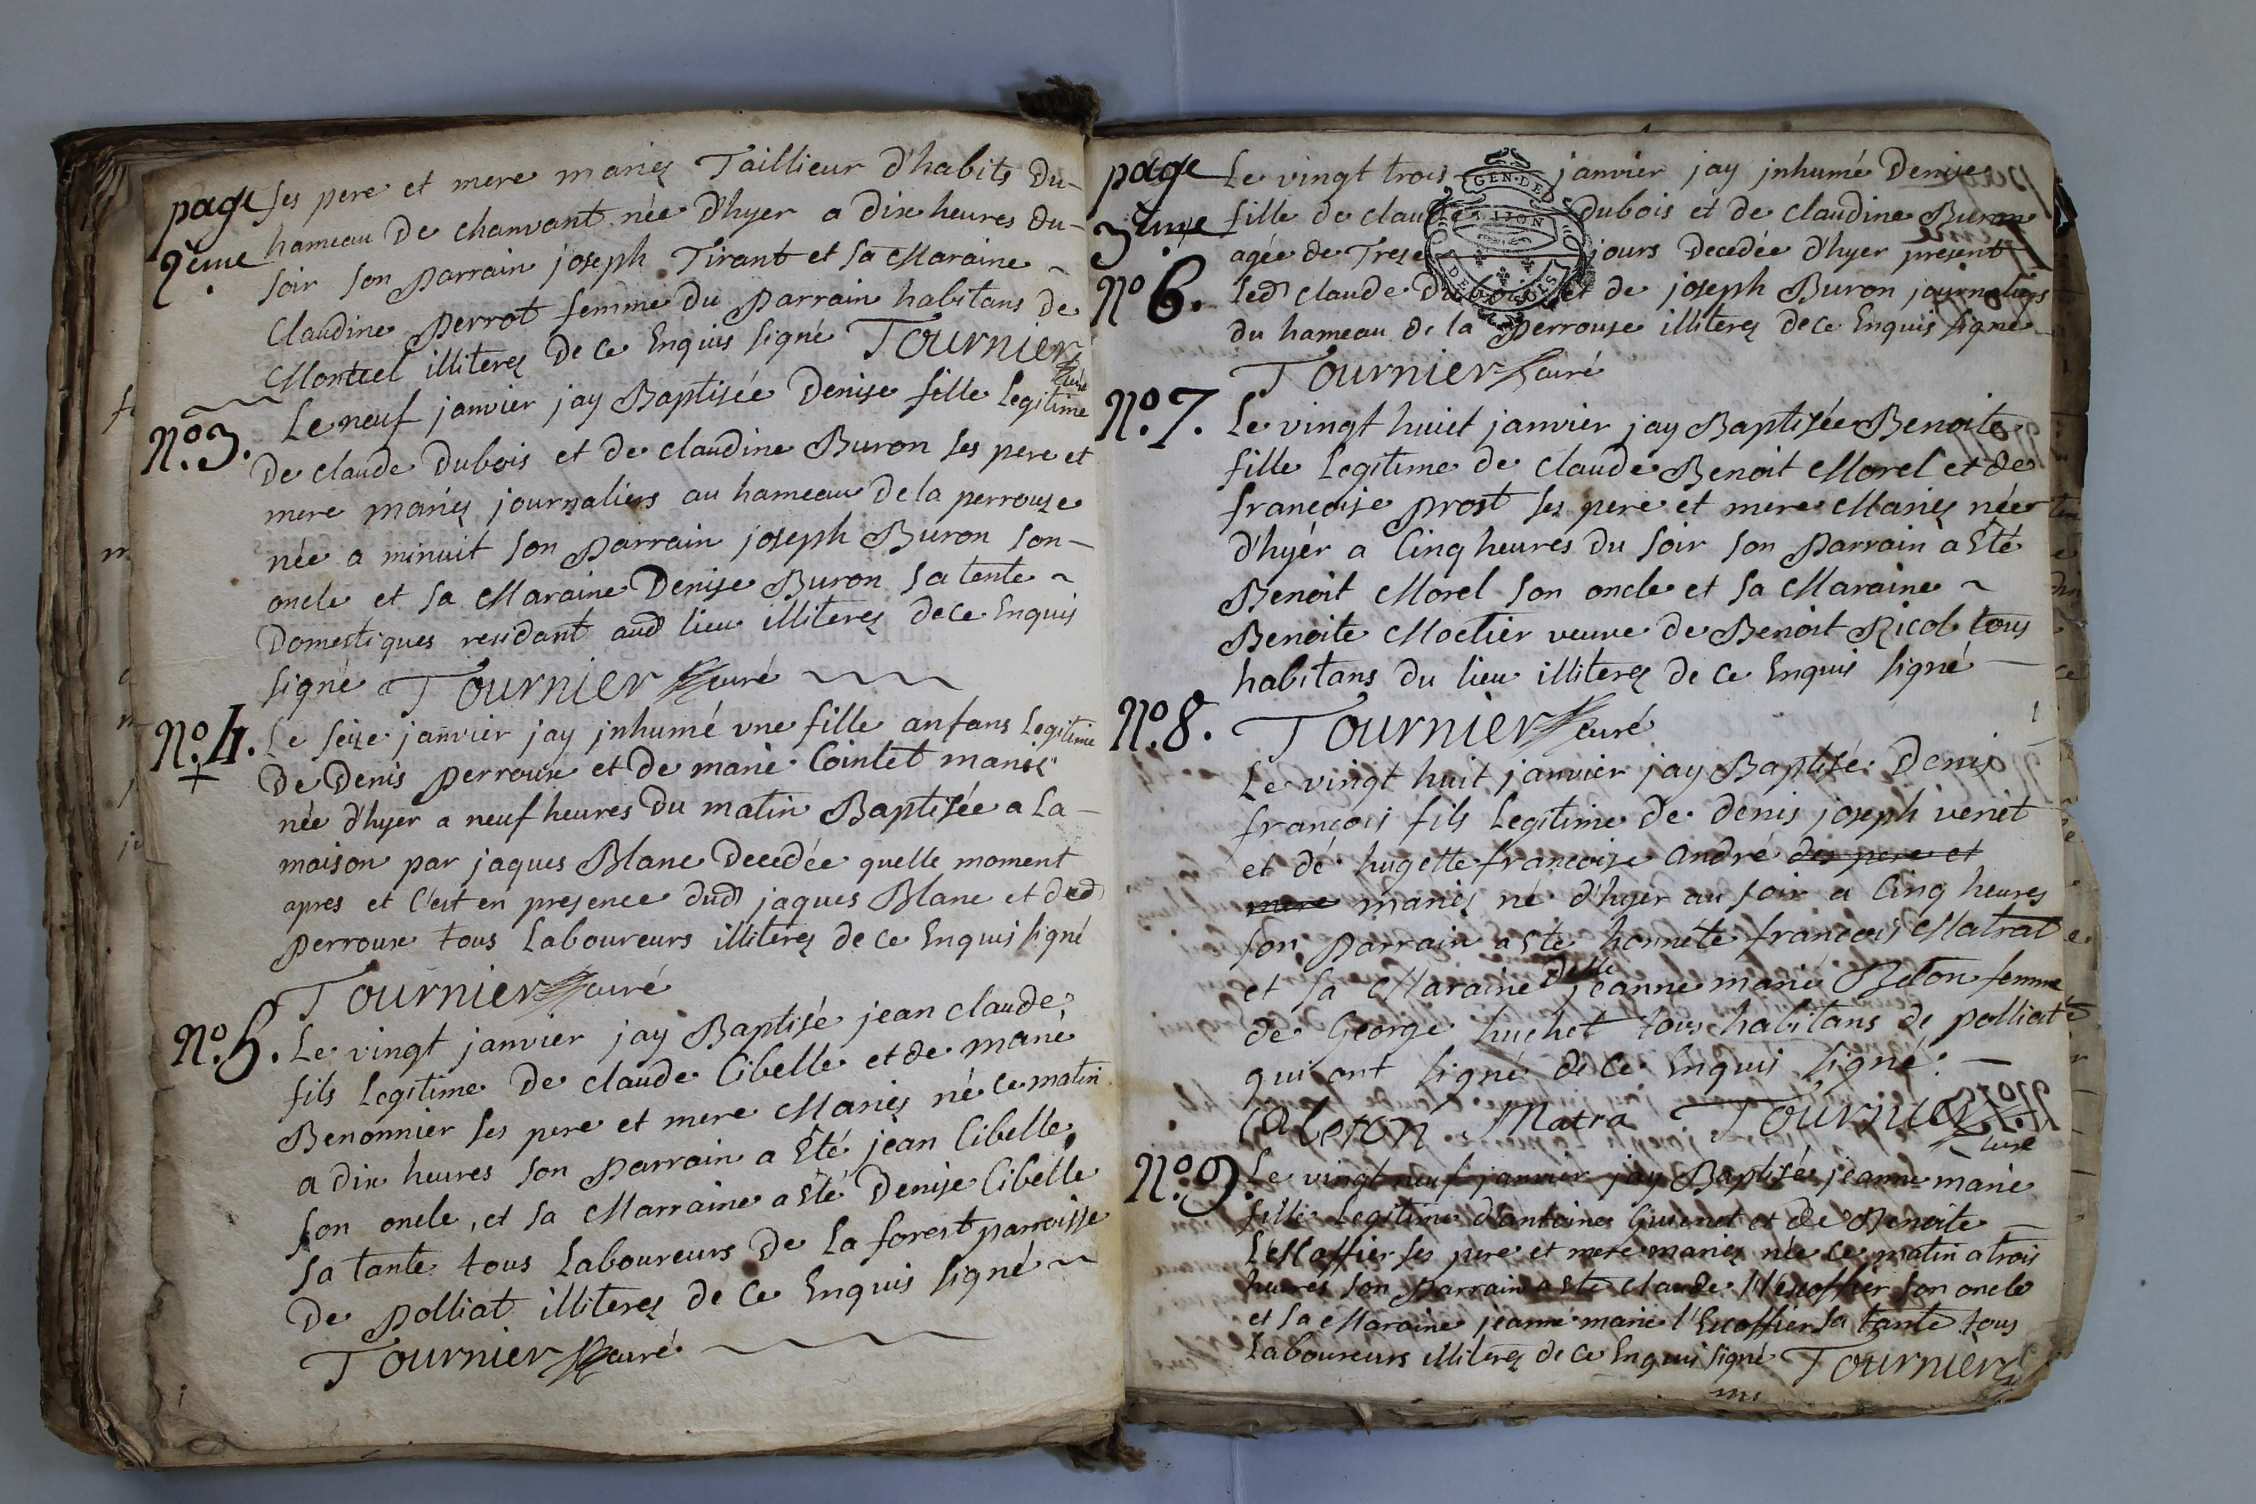 page 2eme
ses pere et mere mariez Taillieur d'habits du-
hameau de chanvant née d'hyer a dix heures du-
soir son parrain joseph Tirant et sa Maraine
Claudine perrot femme du parrain habitans de
Montuel illiterez de ce Enquis signé Tournier curé
No. 3. Le neuf janvier jay Baptisée denise fille legitime
de claude dubois et de claudine Buron ses pere et
mere mariez journaliers au hameau de la perrouze
née a minuit son parrain joseph Buron son-
oncle et sa Maraine denise Buron sa tente
domestiques residant aud lieu illiterez de ce Enquis
signé Tournier curé
No. 4. Le seize janvier jay inhumé une fille anfans legitime
de denis perroux et de marie Cointet mariez
née d'hyer a neuf heures du matin Baptisée a la-
maison par jaques Blanc decedée quelle moment
apres et c'est en presence dud jaques Blanc et dud
perroux tous laboureurs illiterez de ce Enquis signé
Tournier curé
No. 5. Le vingt janvier jay Baptisé jean claude
fils legitime de claude Cibelle et de marie
Benonnier ses pere et mere Mariez né ce matin
a dix heures son parrain a Eté jean Cibelle
son oncle, et sa Marraine a Eté denise Cibelle
sa tante tous laboureurs de la forest parroisse
de polliat illiterez de ce Enquis signé
Tournier curé
page 3eme
No 6. Le vingt trois janvier jay inhumé denise
fille de claude dubois et de claudine Buron
agée de Treze jours decedée d'hyer present
led claude dubois et de joseph Buron journaliers
du hameau de la perrouse illiterez de ce Enquis signé
GEN·DE DIJON
Tournier curé
No. 7. Le vingt huict janvier jay Baptisée Benoite
fille legitime de claude Benoit Morel et de
francoise prost ses pere et mere Mariez née
d'hyér a Cinq heures du soir son parrain a Eté
Benoit Morel son oncle et sa Maraine
Benoite Moctier veuve de Benoit Nicol tous
habitans du lieu illiterez de ce Enquis signé
No. 8. Tournier curé
Le vingt huit janvier jay Baptisé denis
françois fils legitime de denis joseph venét
et dé hugette francoise andré des pere et
mere mariez né d'hyer au soir a Cinq heures
son parrain a Eté honnéte francois Matrat
et sa Maraine delle jeanne marie Belon femme
de George huchet tous habitans de polliat
qui ont signé de ce Enquis signé.
Matra Tournier curé
No. 9. Le vingt neuf janvier jay Baptisée jeanne marie
fille legitime d'antoine Guienet et de Benoite
ses pere et mere mariez née ce matin a trois
heures son parrain a Eté claude son oncle
et sa Maraine jeanne marie l'Escoffier sa tante tous
laboureurs illiterez de ce Enquis signé Tournier